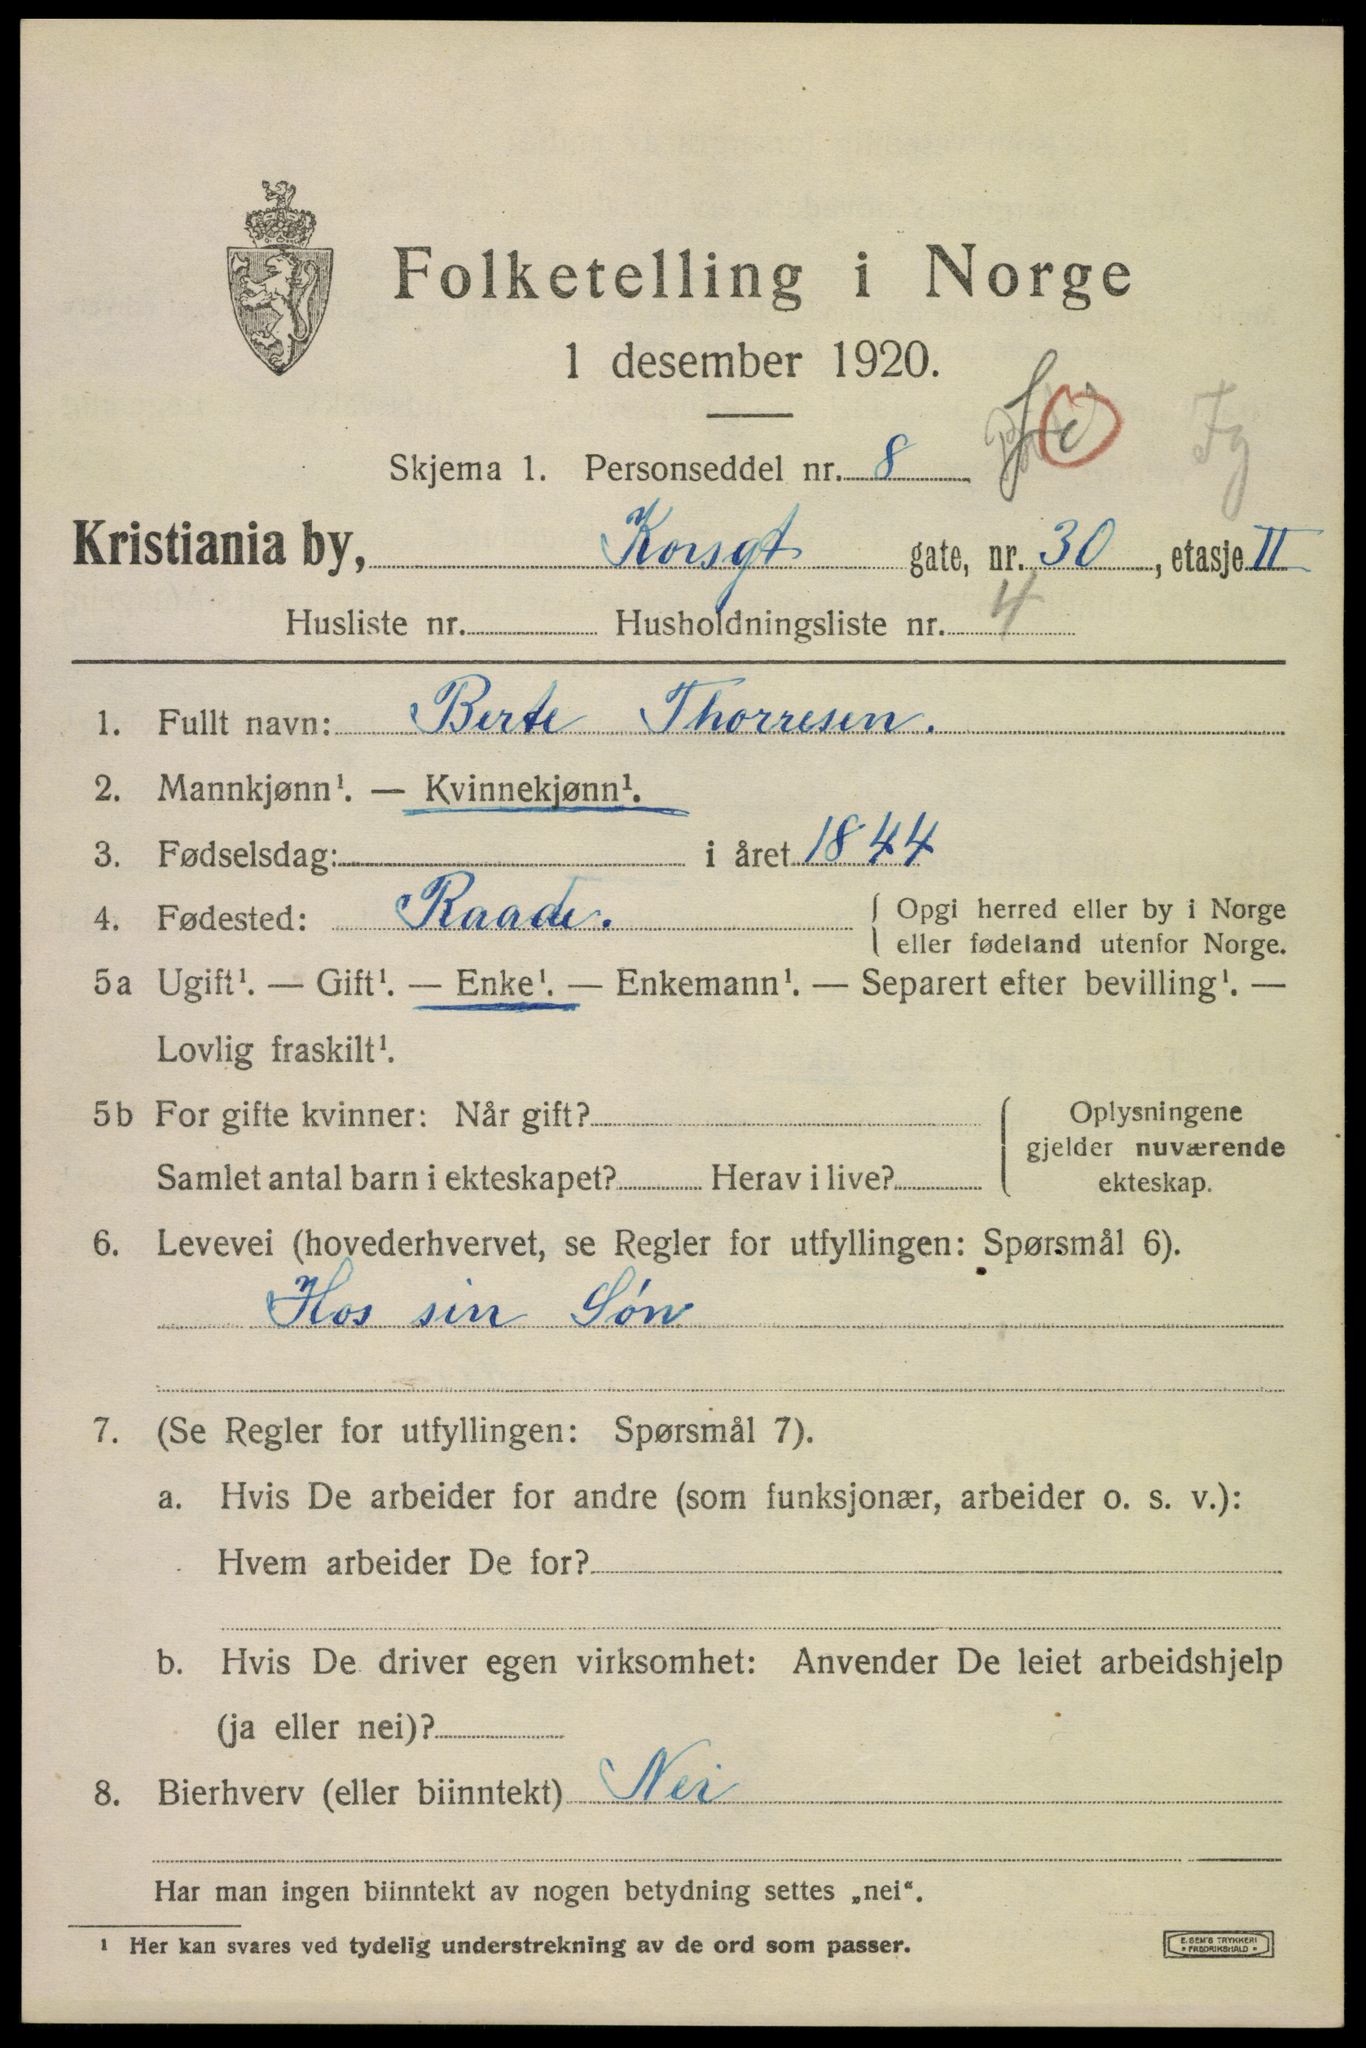 Folketelling i Norge
1 desember 1920.
Skjema 1. Personseddel nr. 8
Fg
Kristiania by, Korsgt gate, nr. 30, etasje II
Husliste nr. Husholdningsliste nr. 4
1. Fullt navn: Berte Thorresen.
2. Mannkjønn¹. — Kvinnekjønn¹.
3. Fødselsdag: i året 1844
4. Fødested: Raade. { Opgi herred eller by i Norge
eller fødeland utenfor Norge.
5a Ugift¹. — Gift¹. — Enke¹. — Enkemann¹. — Separert efter bevilling¹. —
Lovlig fraskilt¹.
5b For gifte kvinner: Når gift?
Samlet antal barn i ekteskapet? Herav i live?
{ Oplysningene
gjelder nuværende
ekteskap.
6. Levevei (hovederhvervet, se Regler for utfyllingen: Spørsmål 6).
Hos sin Søn
7. (Se Regler for utfyllingen: Spørsmål 7).
a. Hvis De arbeider for andre (som funksjonær, arbeider o. s. v.):
Hvem arbeider De for?
b. Hvis De driver egen virksomhet: Anvender De leiet arbeidshjelp
(ja eller nei)?
8. Bierhverv (eller biinntekt) Nei
Har man ingen biinntekt av nogen betydning settes „nei“.
¹ Her kan svares ved tydelig understrekning av de ord som passer.
E. SEM'S TRYKKERI
FREDRIKSHALD